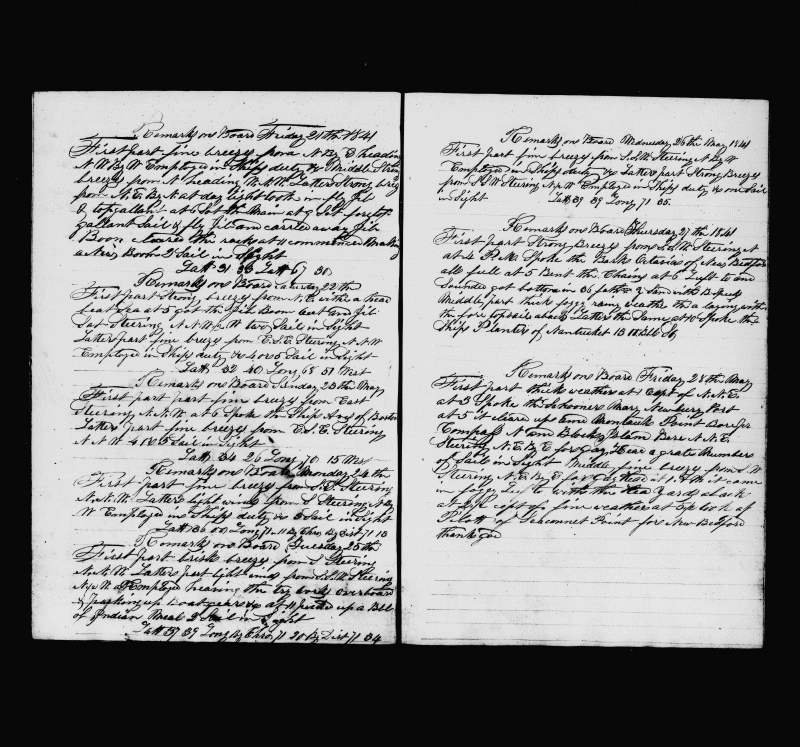 Remarks on Board Friday 21th 1841
First part fine breezy from N By E heading
N W By W Employed in Ships duty &c Middle Strong
breezes from N heading W.N.W. Latter Strong breezy
from N.E. By N. at day light took in fly Jib
& topgallant at 6 Set the Main at 9 Set foretop
gallant Sail & fly jib and carried away Jib
Boom cleared the rack at 11 commenced Making
a New Boom 2 Sail in Sight
Latt 31 38 Latt 67 30
Remarks on Board Saturday 22th
First part Strong breezy from N.E. with a head
beat sea at 5 got the Jib Boom out and Jib
Set Steering N.N.W & W two Sail in Sight
Latter part fine breezy from E.S.E. Steering N.N.W
Employed in Ships duty &c 4 or 5 Sail in Sight
Latt 32 40 Long 68 51 West
Remarks on Board Sunday 23th May
First part part fine breezy from East
Steering N.N.W at 6 Spoke the Ship of Boston
Latter part fine breezy from E.S.E. Steering
N.N.W 4 or 5 Sail in Sight
Latt 34 26 Long 70 15 West
Remarks on Board Monday 24th
First part fine breezy from S.E. Steering
N.N.W. Latter light winds from S Steering N By
W Employed in Ships duty &c 5 Sail in Sight
Latt 36 Long 71 11 By Chro By Dist 71 10
Remarks on Board Tuesday 25th
First part brisk breezy from S Steering
N.N.W. Latter part light winds from S.S.W. Steering
N.W. Employed heaving the try works overboard
& up boat gear &c at 11 picked up a Bbl
of Indian Meal 2 Sail in Sight
Latt 37 39 Long By Chro 71 20 By Dist 71 34
Remarks on Board Wednesday 26th May 1841
First part fine breezy from S.S.W. Steering N By W
Employed in Ships duty &c Latter part Strong Breezes
from S.S.W Steering N & W Employed in Ships duty &c one Sail
in Sight Latt 39 39 Long 71 05
Remarks on Board Thursday 27th 1841
First part Strong Breezy from S.S.W. Steering N
at 4 P.M. Spoke the Bark Octavia of New Bedford
all full at 5 Bent the Chains at 6 Luft to and
Sounded got bottom in 36 fathom & Sand with B Specks
Middle part thick foggy rainy weather the laying with
the fore topsail aback Latter the Same at 10 Spoke the
Ship Planter of Nantucket 13 Bbls
Remarks on Board Friday 28th May
First part thick weather at 1 Capt of N.N.E.
at 3 Spoke the Schooner Mary Newbury Port
at 5 it cleard up Saw Montauk Point Bore per
Compass N and Block Island Bore N.N.E.
Steering N.E. By E for Gay Head a grate numbers
of Sail in Sight Middle fine breezy from S.W
Steering N.E. By E for Gay Head at 1 A.M it came
in foggy Luft to with the Head Yards aback
at Six capt of fine weather at 9 took a
Pilott of Seaconnet Point for New Bedford
thank god